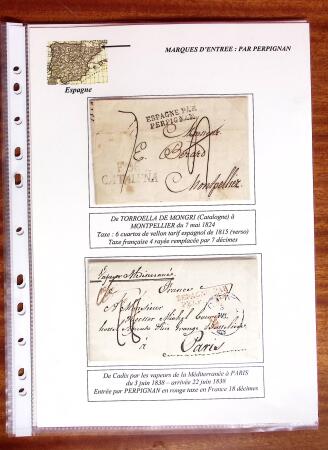 MARQUES D'ENTREE : PAR PERPIGNAN
Espagne
ESPAGNE PAR
PERPIGNAN
Monsieur
E. Berard
CATALUÑA
Montpellier
De TORROELLA DE MONGRI (Catalogne) à
MONTPELLIER du 7 mai 1824
Taxe : 6 cuartos de vellon tarif espagnol de 1815 (verso)
Taxe française 4 rayée remplacée par 7 décimes
Vapeur Méditerranée
France
ESPAGNE PAR
PERPIGNAN
A Monsieur
Monsieur Michel
à
Paris
De Cadix par les vapeurs de la Méditerranée à PARIS
du 3 juin 1838 – arrivée 22 juin 1838
Entrée par PERPIGNAN en rouge taxe en France 18 décimes